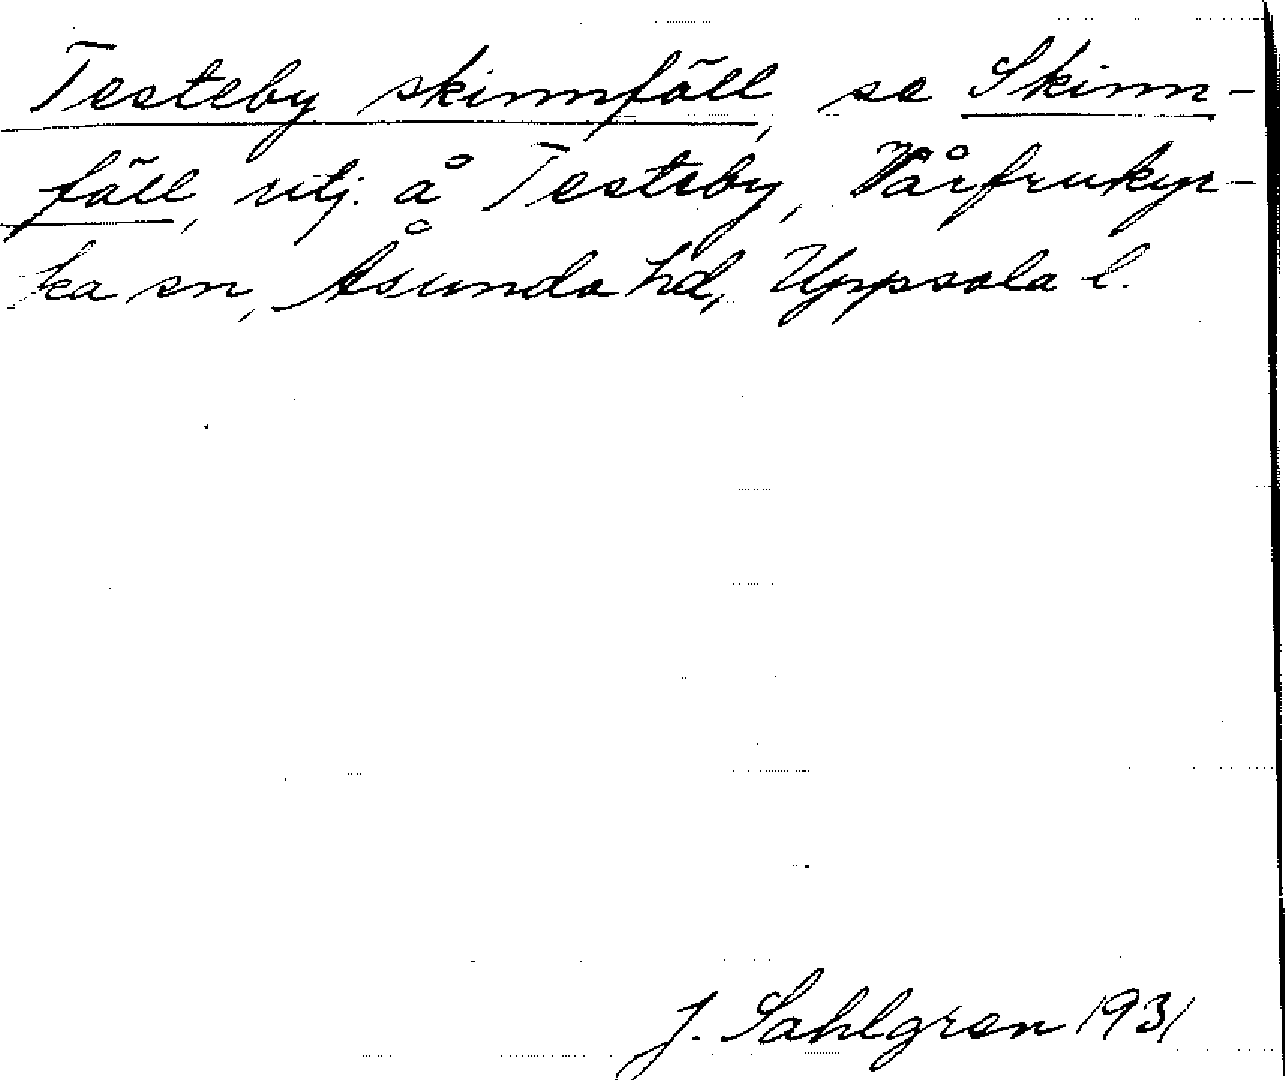 Testeby skinnfäll, se Skinn-
fäll, utj. å Testeby, Vårfrukyr-
ka sn, Åsunda hd, Uppsala l.
J. Sahlgren 1931